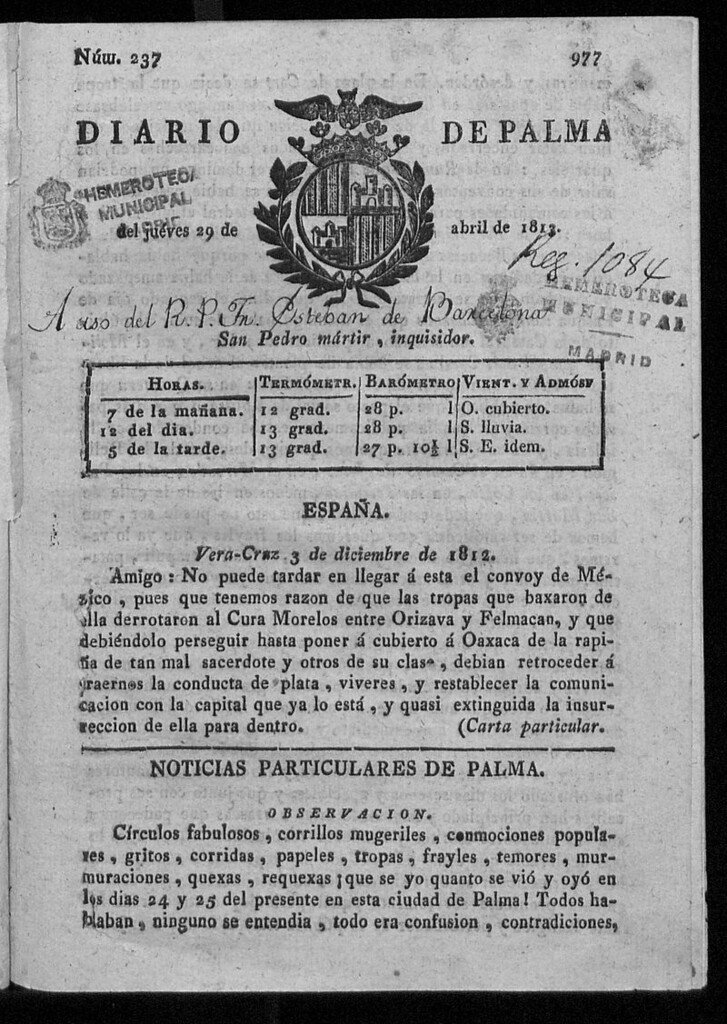 Núm. 237
977
DIARIO DE PALMA
HEMEROTECA
MUNICIPAL
del jueves 29 de abril de 1813.
Reg. 1084
HEMEROTECA
MUNICIPAL
MADRID
Aviso del R. P. Fr. Esteban de Barcelona
San Pedro mártir, inquisidor.
HORAS. TERMÓMETR. BARÓMETRO VIENT. Y ADMÓSF
7 de la mañana. 12 grad. 28 p. 1 O. cubierto.
12 del dia. 13 grad. 28 p. 1 S. lluvia.
5 de la tarde. 13 grad. 27 p. 10½ l S. E. idem.
ESPAÑA.
Vera-Cruz 3 de diciembre de 1812.
Amigo: No puede tardar en llegar á esta el convoy de Mé-
xico, pues que tenemos razon de que las tropas que baxaron de
ella derrotaron al Cura Morelos entre Orizava y Felmacan, y que
debiéndolo perseguir hasta poner á cubierto á Oaxaca de la rapi-
ña de tan mal sacerdote y otros de su clase, debian retroceder á
traernos la conducta de plata, viveres, y restablecer la comuni-
cacion con la capital que ya lo está, y quasi extinguida la insur-
reccion de ella para dentro. (Carta particular.
NOTICIAS PARTICULARES DE PALMA.
OBSERVACION.
Círculos fabulosos, corrillos mugeriles, conmociones popula-
res, gritos, corridas, papeles, tropas, frayles, temores, mur-
muraciones, quexas, requexas ¡que se yo quanto se vió y oyó en
los dias 24 y 25 del presente en esta ciudad de Palma! Todos ha-
blaban, ninguno se entendia, todo era confusion, contradiciones,